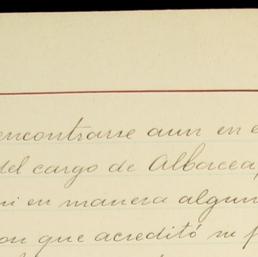 encontrarse aun en e
del cargo de Albacea,
ni en manera algun
on que acreditó su p